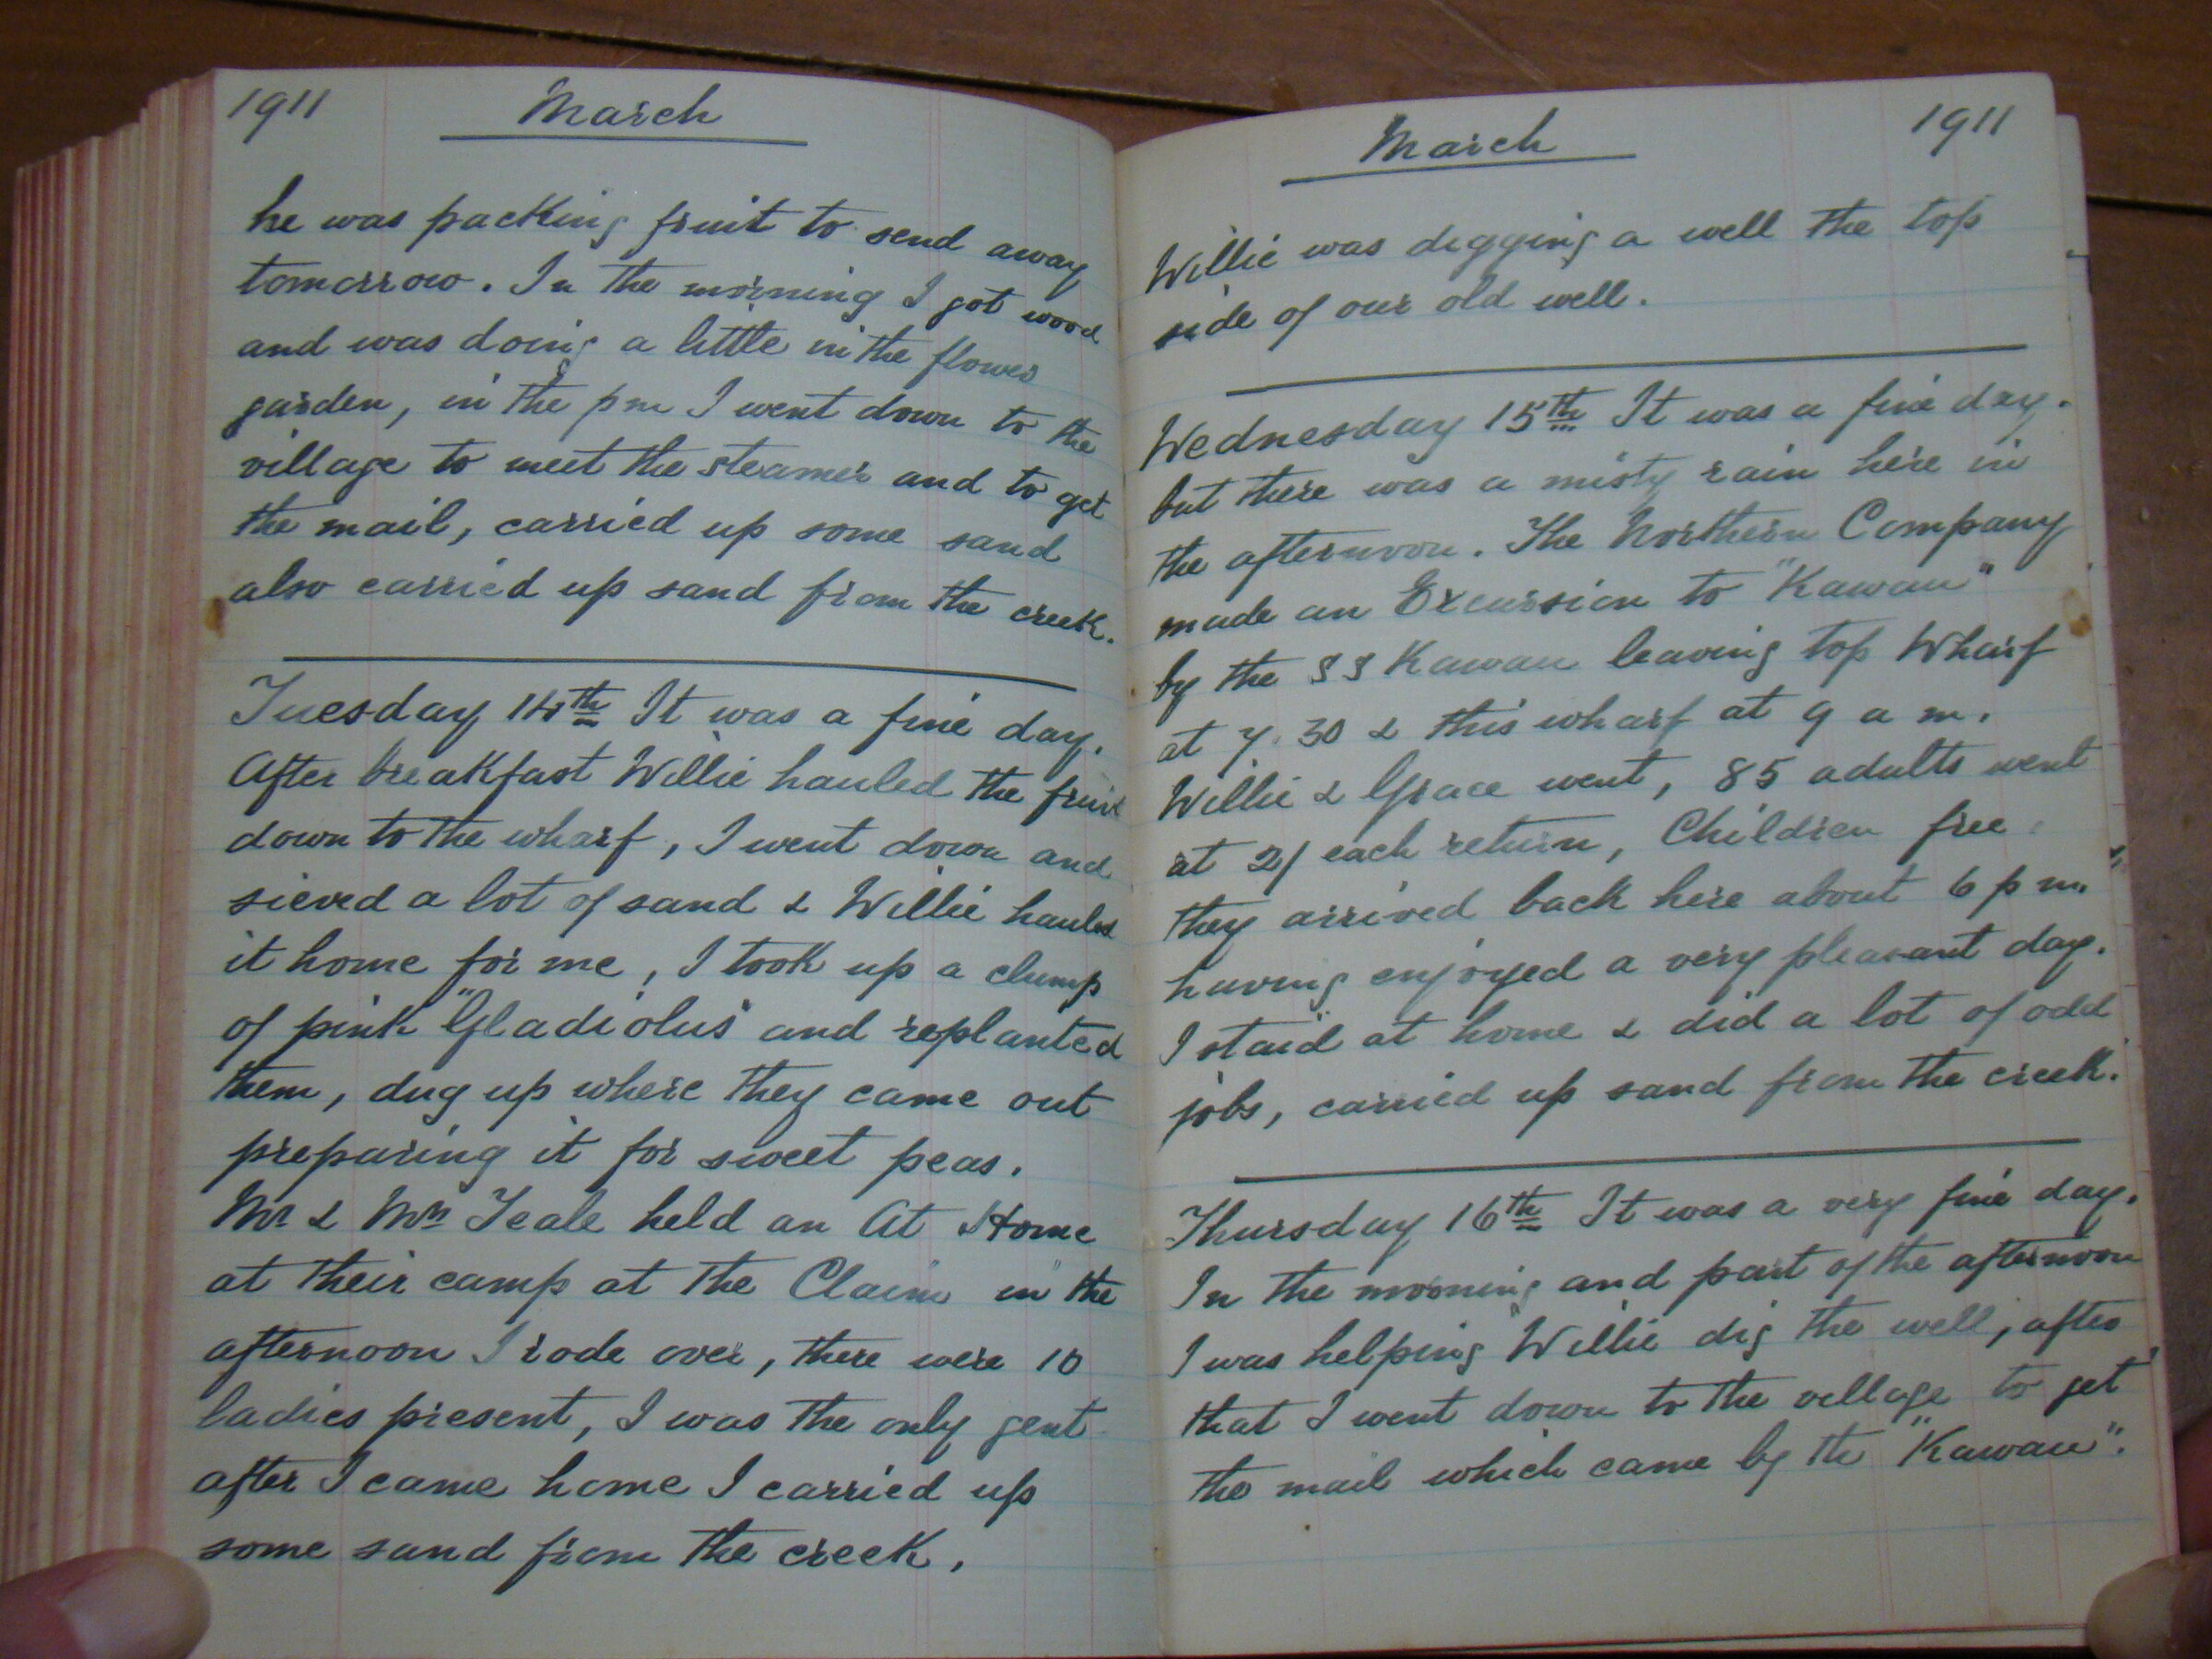 1911 March
he was packing fruit to send away
tomorrow. In the morning I got wood
and was doing a little in the flower
garden, in the pm I went down to the
village to meet the steamer and to get
the mail, carried up some sand
also carried up sand from the creek.
Tuesday 14th It was a fine day.
After breakfast Willie hauled the fruit
down to the wharf, I went down and
sieved a lot of sand & Willie hauled
it home for me, I took up a clump
of pink "Gladiolus" and replanted
them, dug up where they came out
preparing it for sweet peas.
Mr & Mrs Teale held an At Home
at their camp at the Claim in the
afternoon I rode over, there were 10
ladies present, I was the only gent
after I came home I carried up
some sand from the creek.
March 1911
Willie was digging a well the top
side of our old well.
Wednesday 15th It was a fine day.
but there was a misty rain here in
the afternoon. The Northern Company
made an Excursion to "Kawau"
by the SS Kawau leaving top Wharf
at 7.30 & this wharf at 9 a m.
Willie & Grace went, 85 adults went
at 2/ each return, Children free.
they arrived back here about 6 p m.
having enjoyed a very pleasant day.
I staid at home & did a lot of odd
jobs, carried up sand from the creek.
Thursday 16th It was a very fine day.
In the morning and part of the afternoon
I was helping Willie dig the well, after
that I went down to the village to get
the mail which came by the "Kawau".